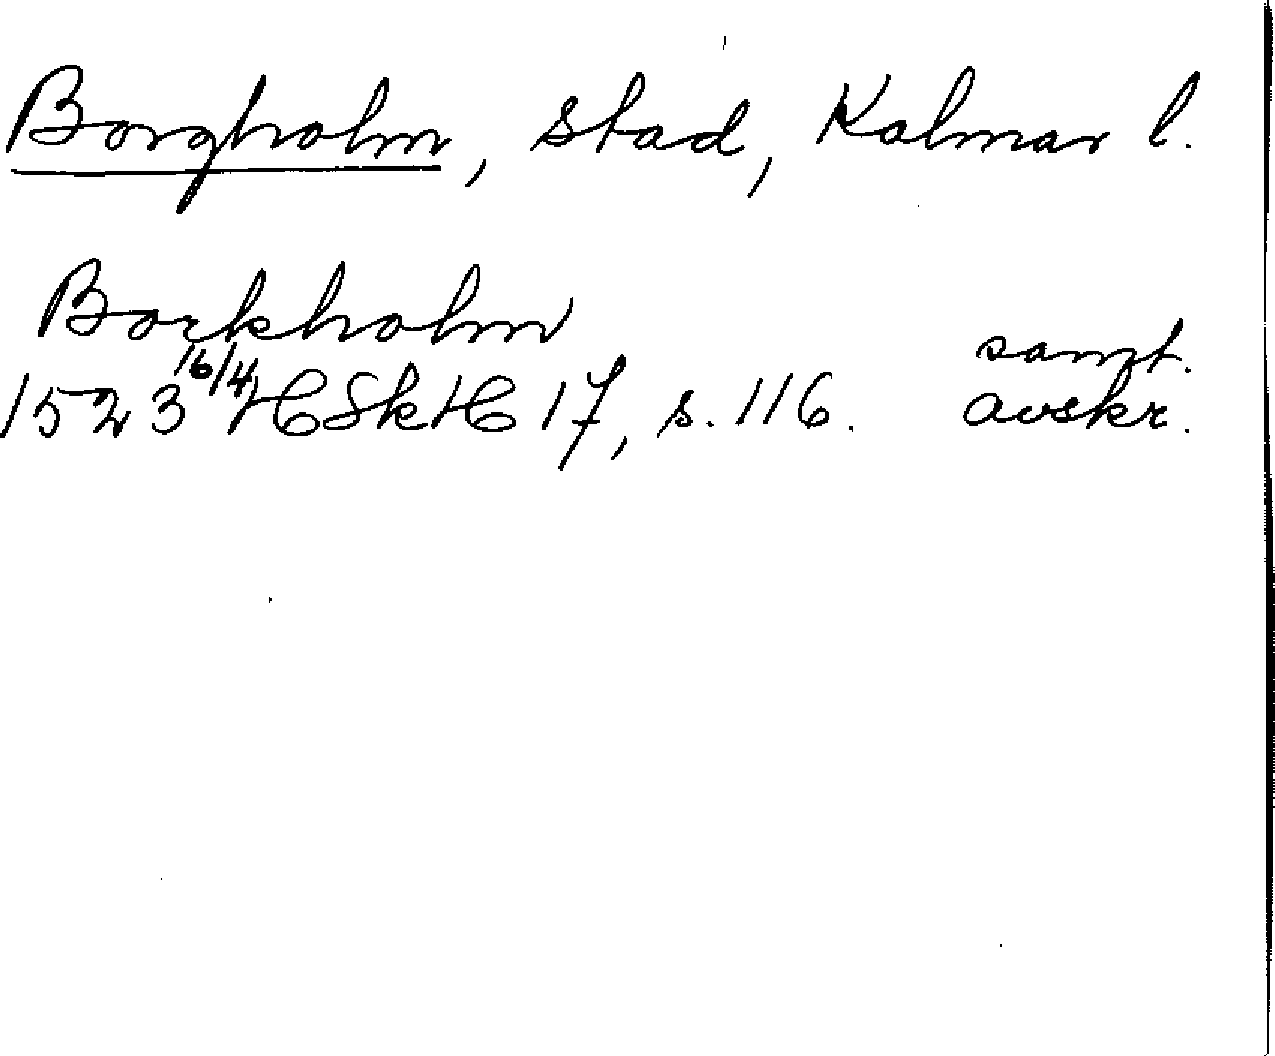 Borgholm, stad, Kalmar l.
Borkholm
1523 16/4 HSkH 17, s. 116. samt. avskr.